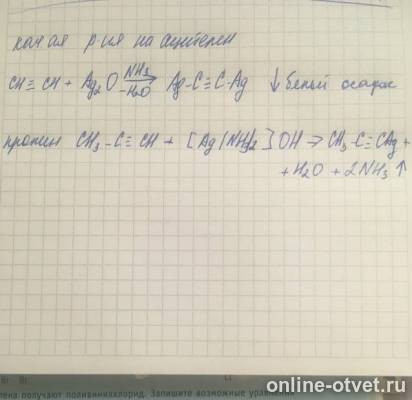 качая р-ия на ацетилен
CH≡CH + Ag₂O NH₃ → -H₂O Ag-C≡C-Ag ↓ белый осадок
пропин CH₃-C≡CH + [Ag(NH₃)₂]OH → CH₃-C≡CAg +
+ H₂O + 2NH₃↑
тена получают поливинилхлорид. Запишите возможные уравнения
online-otvet.ru